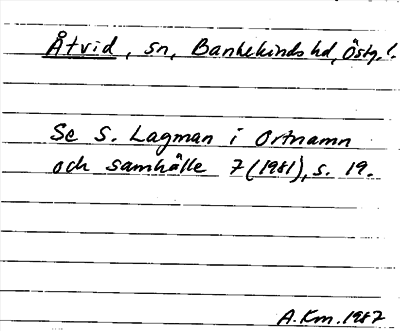 Åtvid, sn, Bankekinds hd, Östg. l.
Se S. Lagman i Ortnamn
och samhälle 7 (1981), s. 19.
A. Km. 1987